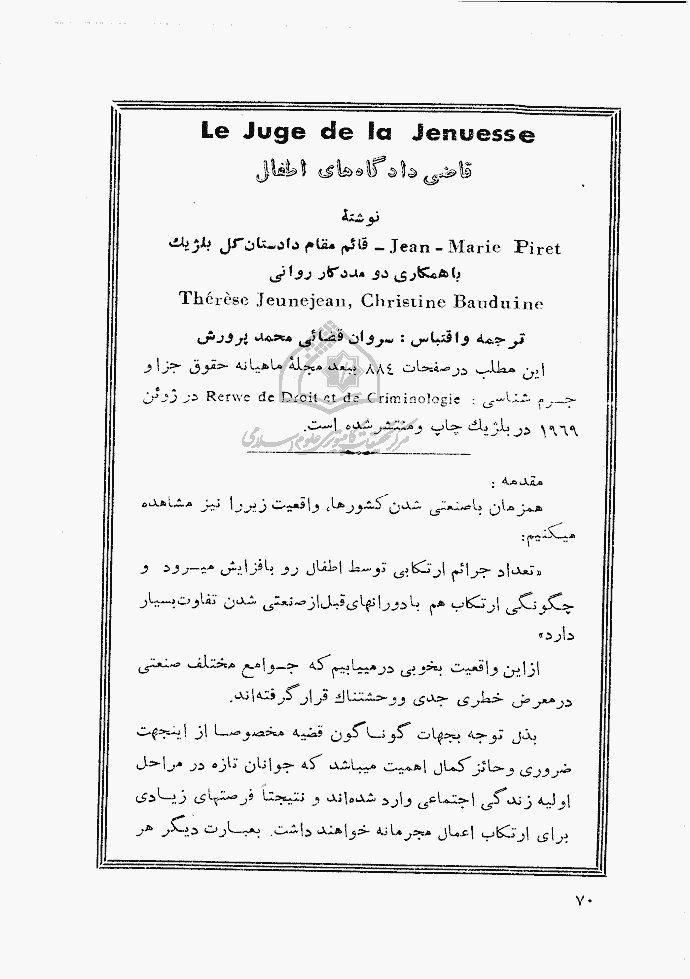 Le Juge de la Jenuesse
قاضی دادگاه‌های اطفال
نوشتهٔ
Jean - Marie Piret – قائم مقام دادستان کل بلژیک
باهمکاری دو مددکار روانی
Thérèse Jeunejean, Christine Bauduine
ترجمه واقتباس : سروان قضائی محمد پرورش
این مطلب درصفحات ۸۸٤ ببعد مجلهٔ ماهیانه حقوق جزا و
جـرم شناسی : Rerwe de Droit et de Criminologie در ژوئن
۱۹٦۹ در بلژیك چاپ ومنتشرشده است.
مرکز تحقیقات کامپیوتری علوم اسلامی
مقدمه :
همزمان باصنعتی شدن کشورها، واقعیت زیررا نیز مشاهده
میکنیم:
«تعداد جرائم ارتکابی توسط اطفال رو بافزایش میـرود و
چگونگی ارتکاب هم بادورانهای‌قبل‌ازصنعتی شدن تفاوت‌بسیار
دارد»
ازاین واقعیت بخوبی درمییابیم‌که جـوامع مختلف صنعتی
درمعرض خطری جدی ووحشتناك قرارگرفته‌اند.
بذل توجه بجهات گونـاگون قضیه مخصوصـا از اینجهت
ضروری وحائزکمال اهمیت میباشد که جوانان تازه در مراحل
اولیه زندگی اجتماعی وارد شده‌اند و نتیجتاً فرصتهای زیـادی
برای ارتکاب اعمال مجرمانه خواهند داشت. بعبـارت دیگر هر
۷۰